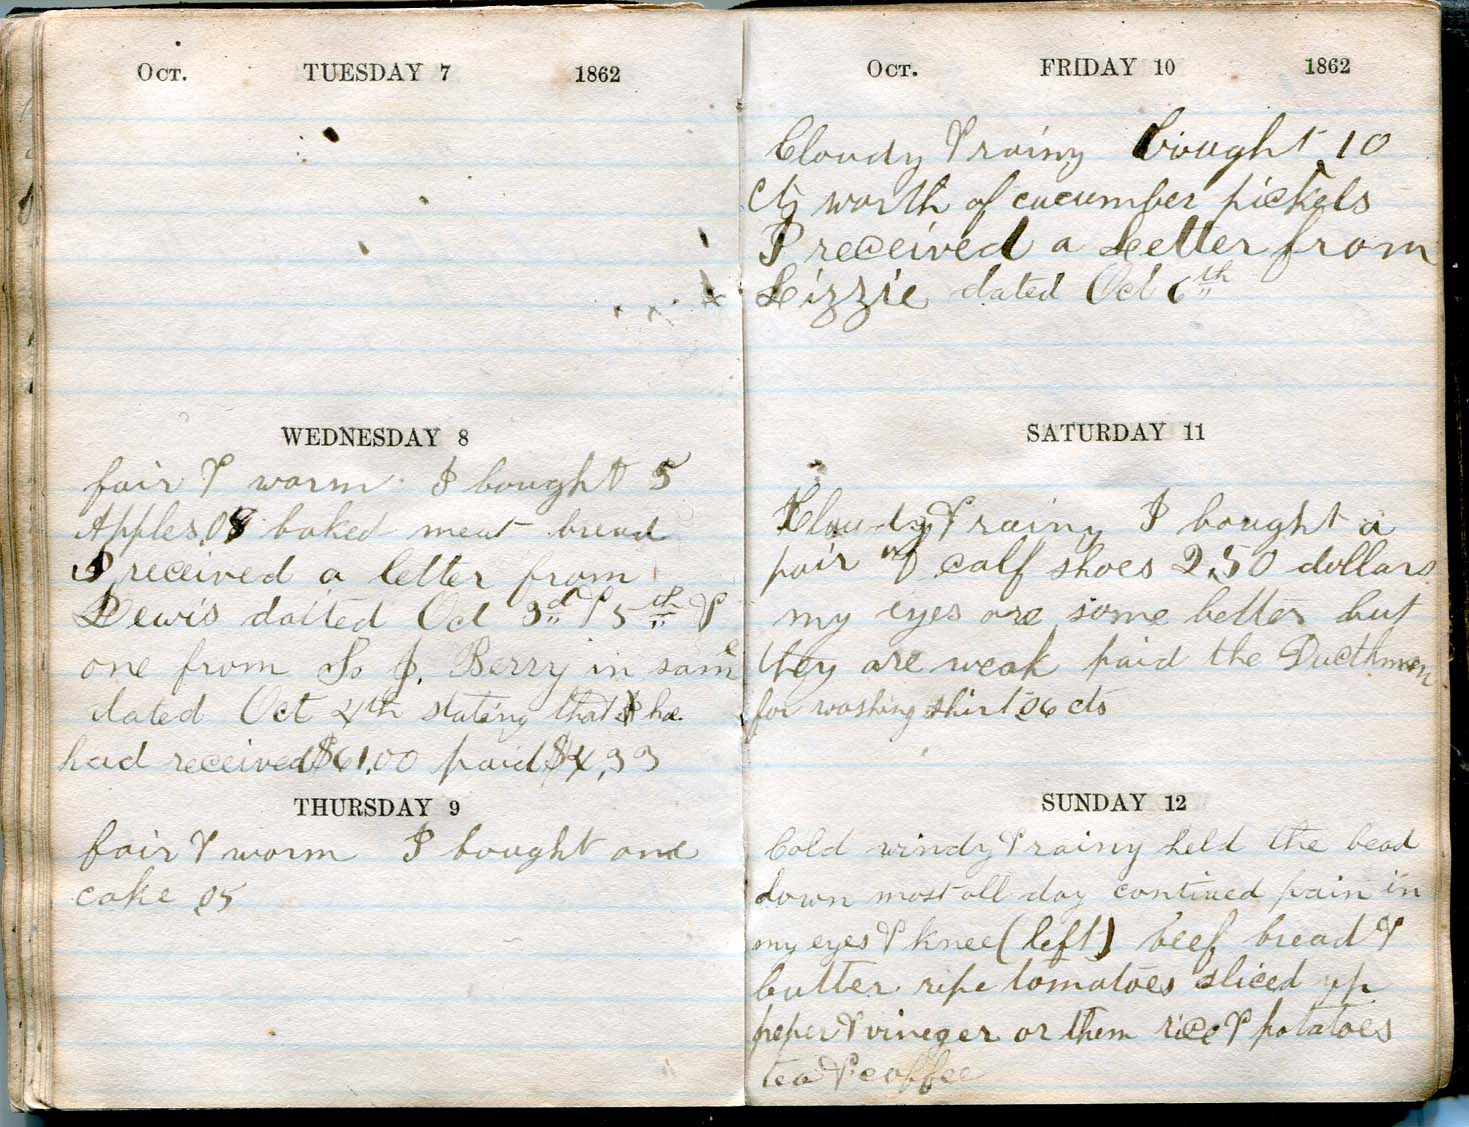 Oct. TUESDAY 7 1862
WEDNESDAY 8
fair & warm I bought 5
Apples 08 baked meat bread
I received a letter from
Lewis datted Oct 3d & 5th &
one from S. J. Berry in same
dated Oct 4th stating that he
had received $61,00 paid $4,33
THURSDAY 9
fair & warm I bought one
cake 05
Oct. FRIDAY 10 1862
Cloudy & rainy bought 10
cts worth of cucumber pickels
I received a Leetter from
Lizzie dated Oct 6th
SATURDAY 11
Cloudy & rainy I bought a
pair of calf shoes 2,50 dollars
my eyes are some better but
they are weak paid the Ducthman
for washing shirt 06 cts
SUNDAY 12
Cold windy & rainy held the bead
down most all day contiued pain in
my eyes & knee (left) beef bread &
butter ripe tomatoes sliced up
peper & vineger or them rice & potatoes
tea & coffee